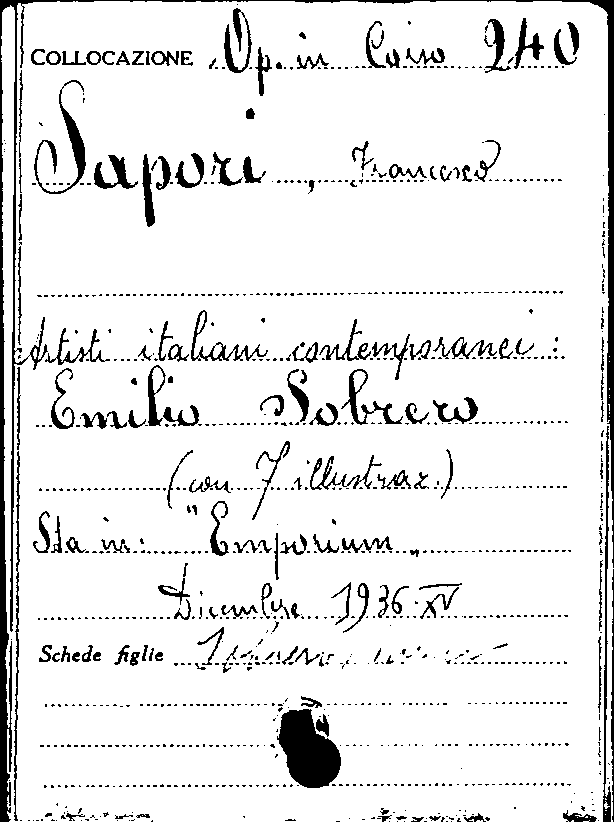 COLLOCAZIONE Op. in Corso 240
Sapori, Francesco
Artisti italiani contemporanei:
Emilio Sobrero
(con 7 illustraz.)
Sta in: "Emporium"
Dicembre 1936-XV
Schede figlie